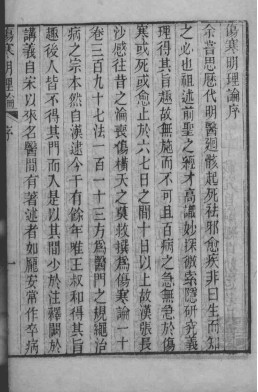 傷寒明理論序
余嘗思歷代明醫迴骸起死祛邪愈疾非曰生而知
之必也祖述前聖之經才高識妙探微索隱研究義
理得其旨趣故無施而不可且百病之急無急於傷
寒或死或愈止於六七日之間十日以上故漢張長
沙感往昔之淪喪傷橫夭之莫救撰為傷寒論一十
卷三百九十七法一百一十三方為醫門之規繩治
病之宗本然自漢逮今千有餘年唯王叔和得其旨
趣後人皆不得其門而入是以其間少於注釋闕於
講義自宋以來名醫間有著述者如龐安常作卒病
傷寒明理論 序 一